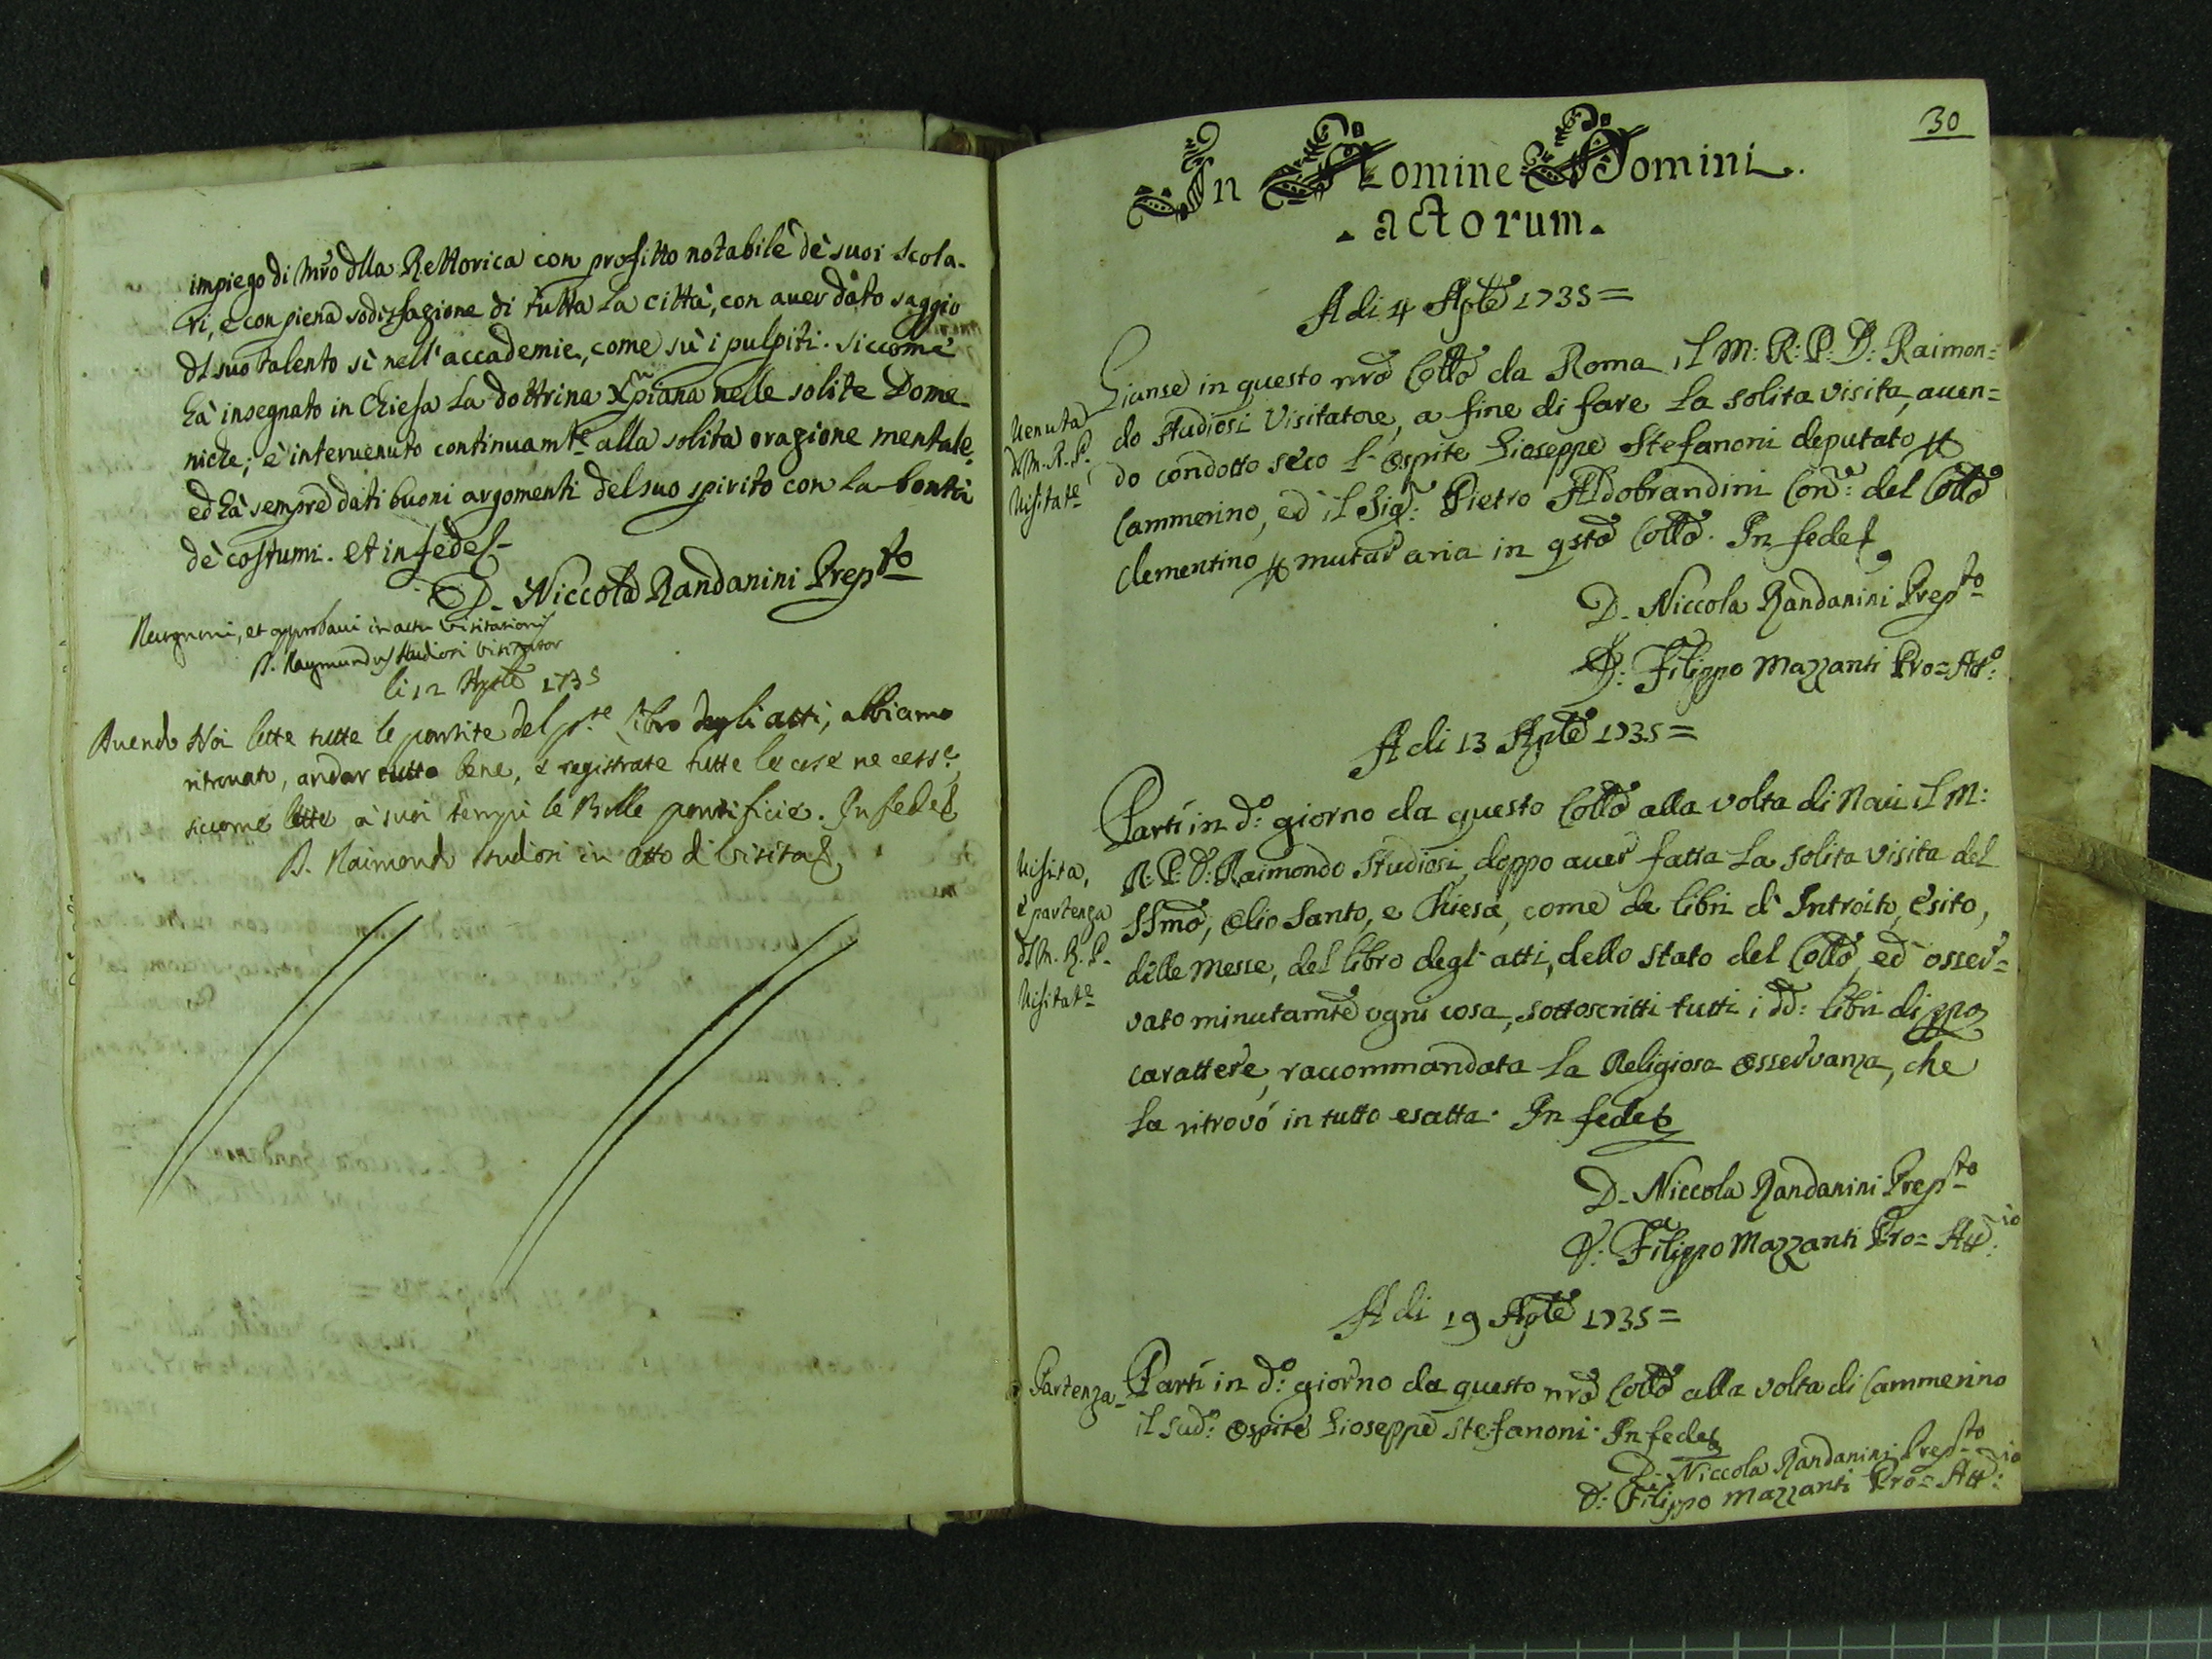 impiego di Mrõ dlla Rettorica con profitto notabile de' suoi scola-
ri, e con piena sodisfazione di tutta la città, con auer dato saggio
dl suo talento sì nell'accademie, come sù i pulpiti. Siccome
hà insegnato in Chiesa la dottrina Xpiana nelle solite Dome-
niche; è interuenuto continuamte alla solita orazione mentale,
ed hà sempre dati buoni argomenti del suo spirito con la bontà
de' costumi. et in fede
D. Niccola Randanini Prepto
Recognoui, et approbaui in actu Visitationis
D. Raymundus Studiosi Visitator
li 12 Aple 1735
Auendo Noi lette tutte le partite del pte Libro degli atti, abbiamo
ritrouato, andar tutto bene, e registrate tutte le cose necesse,
siccome lette à suoi tempi le Bolle pontificie. In fede
D. Raimondo Studiosi in atto di Visita
30
In Nomine Domini
actorum.
A di 4 Aple 1735=
Gianse in questo nrõ Collo da Roma il M: R: P: D: Raimon=
do Studiosi Visitatore, a fine di fare la solita visita, auen=
do condotto seco l'ospite Gioseppe Stefanoni deputato p
Cammerino, ed il Sigr: Pietro Aldobrandini Conre: del Collo
Clementino p mutar aria in qsto Collo. In fede
Uenuta
dl M. R. P.
Uisitate
D. Niccola Randanini Prepto
D: Filippo Mazzanti Pro=Atto:
A di 13 Aple 1735=
Partì in do: giorno da questo Collo alla volta di Nari il M:
R: P: D: Raimondo Studiosi, doppo auer fatta la solita visita del
SSmo, Olio Santo, e Chiesa, come de libri d'Introito, esito,
delle Messe, del libro degl'atti, dello stato del Collo, ed osser=
vato minutamte ogni cosa, sottoscritti tutti i dd: libri di ppo
carattere, raccommandata la Religiosa osservanza, che
la ritrovò in tutto esatta. In fede
Uisita,
e partenza
dl M. R. P.
Uisitate
D. Niccola Randanini Prepto
D: Filippo Mazzanti Pro=Attio:
A di 19 Aple 1735=
Partenza
Partì in do: giorno da questo nrõ Collo alla volta di Cammerino
il sudo: ospite Gioseppe Stefanoni. In fede
D. Niccola Randanini Prepto
D: Filippo Mazzanti Pro=Attio: